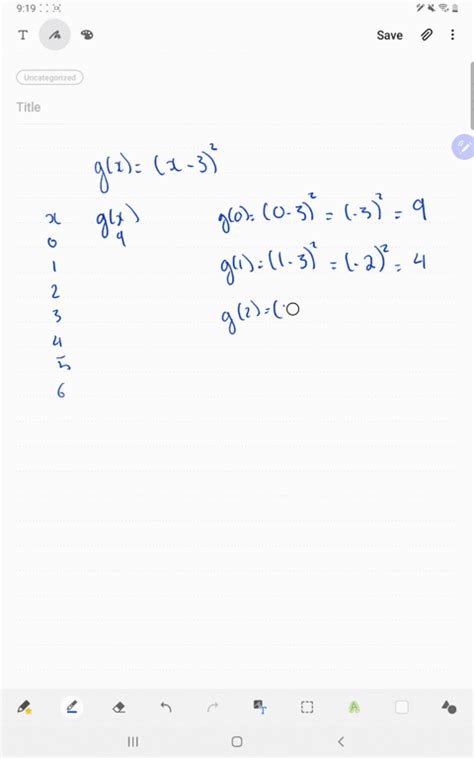 9:19
T
Save
Uncategorized
Title
g(x) = (x - 3)²
x g(x) g(0) = (0 - 3)² = (-3)² = 9
0 9
1 g(1) = (1 - 3)² = (-2)² = 4
2
3 g(2) = (
4
5
6
T
A